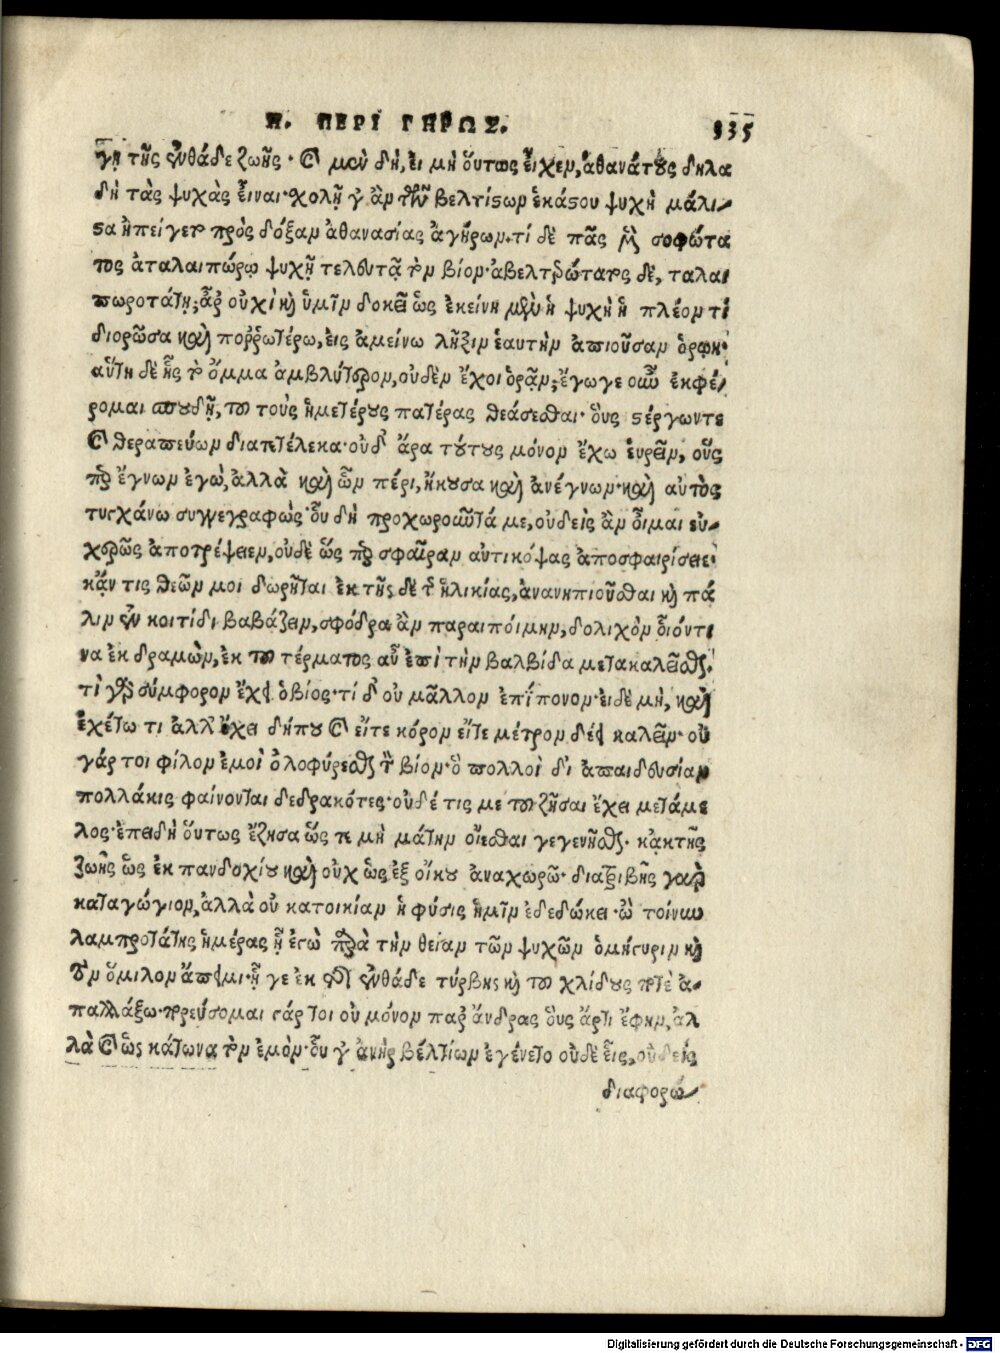 Η. ΠΕΡΙ ΓΗΡΩΣ. 335
γῃ τῆς ἐνθάδε ζωῆς· καὶ μὲν δὴ, εἰ μὴ οὕτως εἶχεν, ἀθανάτους δηλα
δὴ τὰς ψυχὰς εἶναι· σχολῇ γ' ἂν τῶν βελτίστων ἑκάστου ψυχὴ μάλι-
στα ἠπείγετο πρὸς δόξαν ἀθανασίας ἀγήρων. τί δὲ πᾶς μὲν σοφώτα
τος ἀταλαιπώρῳ ψυχῇ τελευτᾷ τὸν βίον· ἀβελτερώτατος δὲ, ταλαι
πωροτάτῃ; ἆρ' οὐχὶ καὶ ὑμῖν δοκεῖ ὡς ἐκείνη μὲν ἡ ψυχὴ ἡ πλέον τι
διορῶσα καὶ πορῤῥωτέρω, εἰς ἀμείνω λῆξιν ἑαυτὴν ἀπιοῦσαν ὁρῴη·
αὕτη δὲ ἧς τὸ ὄμμα ἀμβλύτερον, οὐδὲν ἔχοι ὁρᾷν; ἔγωγε οὖν ἐκφέ-
ρομαι σπουδῇ, τοῦ τοὺς ἡμετέρους πατέρας θεάσεσθαι· οὓς στέργων τε
καὶ θεραπεύων διατετέλεκα· οὐδ' ἄρα τούτους μόνον ἔχω εὑρεῖν, οὓς
περ ἔγνων ἐγὼ, ἀλλὰ καὶ ὧν πέρι, ἤκουσα καὶ ἀνέγνων· καὶ αὐτὸς
τυγχάνω συγγεγραφώς· οὗ δὴ προχωροῦντά με, οὐδεὶς ἂν οἶμαι εὐ-
χερῶς ἀποτρέψειεν, οὐδὲ ὥς περ σφαῖραν αὐτικόψας ἀποσφαιρίσειε·
κἄν τις θεῶν μοι δωρῆται ἐκ τῆς δὲ τῆς ἡλικίας, ἀνανηπιοῦσθαι καὶ πά
λιν ἐν κοιτίδι βαβάζειν, σφόδρα ἂν παραιποίμην, δολιχὸν οἱόντι
να ἐκδραμὼν, ἐκ τοῦ τέρματος αὖ ἐπὶ τὴν βαλβίδα μετακαλεῖσθαι.
τί γὰρ σύμφορον ἔχει ὁ βίος· τί δ' οὐ μᾶλλον ἐπίπονον· εἰ δὲ μὴ, καὶ
ἐχέτω τι ἀλλ' ἔχει δήπου καὶ εἴτε κόρον εἴτε μέτρον δέει καλεῖν· οὐ
γάρ τοι φίλον ἐμοὶ ὀλοφύρεσθαι τὸν βίον· ὃ πολλοὶ δι' ἀπαιδευσίαν
πολλάκις φαίνονται δεδρακότες· οὐδέ τις με τοῦ ζῆσαι ἔχει μετάμε
λος· ἐπειδὴ οὕτως ἔζησα ὥς τε μὴ μάτην οἴεσθαι γεγενῆσθαι. κᾀκ τῆς
ζωῆς ὡς ἐκ πανδοχίου καὶ οὐχ ὡς ἐξ οἴκου ἀναχωρῶ· διατριβῆς γὰρ
καταγώγιον, ἀλλὰ οὐ κατοικίαν ἡ φύσις ἡμῖν ἐδεδώκει· ὢ τοίνυν
λαμπροτάτης ἡμέρας ᾗ ἐγὼ παρὰ τὴν θείαν τῶν ψυχῶν ὁμήγυριν καὶ
τὸν ὅμιλον ἄπειμι· ᾗ γε ἐκ τῆς ἐνθάδε τύρβης καὶ τοῦ χλίδους ποτὲ ἀ-
παλλάξω· πορεύσομαι γάρ τοι οὐ μόνον παρ' ἄνδρας οὓς ἄρτι ἔφην, ἀλ
λὰ καὶ ὡς κάτωνα τὸν ἐμόν· οὗ γ' ἀνὴρ βέλτίων ἐγένετο οὐδὲ εἷς, οὐδεὶς
διαφορώ-
Digitalisierung gefördert durch die Deutsche Forschungsgemeinschaft - DFG